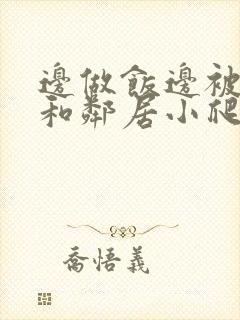 邊做飯邊被
和鄰居小爬
喬悟義